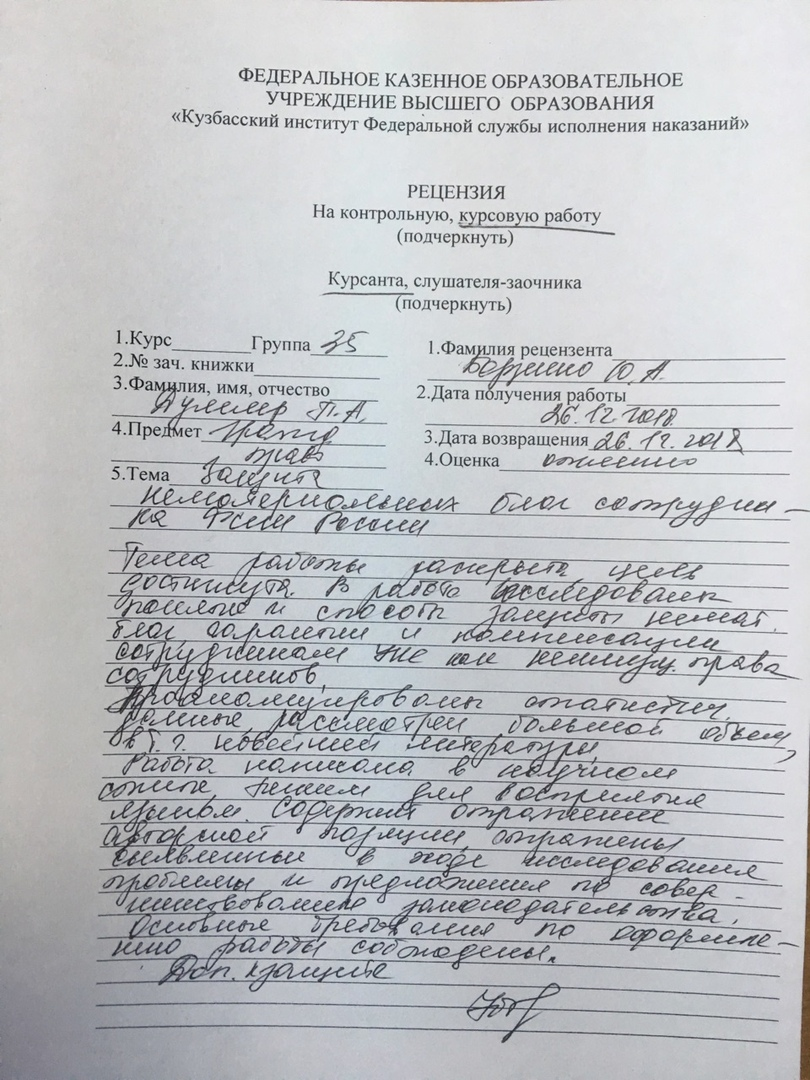 ФЕДЕРАЛЬНОЕ КАЗЕННОЕ ОБРАЗОВАТЕЛЬНОЕ
УЧРЕЖДЕНИЕ ВЫСШЕГО ОБРАЗОВАНИЯ
«Кузбасский институт Федеральной службы исполнения наказаний»
РЕЦЕНЗИЯ
На контрольную, курсовую работу
(подчеркнуть)
Курсанта, слушателя-заочника
(подчеркнуть)
1.Курс________Группа 35
2.№ зач. книжки
3.Фамилия, имя, отчество
П.А.
4.Предмет гражд
право
5.Тема Защита
1.Фамилия рецензента
Ю.А.
2.Дата получения работы
26.12.2018
3.Дата возвращения 26.12.2018
4.Оценка отлично
нематериальных благ сотрудни-
ка ФСИН России
Тема работы раскрыта цель
достигнута. В работе исследованы
и способы защиты немат.
благ гарантии и компенсации
сотрудникам права
сотрудников.
Проанализированы статистич.
данные, рассмотрен большой объем,
в т.ч. новейшей литературы.
Работа написана в научном
стиле, для восприятия
языком. Содержит отражение
авторской позиции, отражены
выявленные в ходе исследования
проблемы и предложения по совер-
шенствованию законодательства.
Основные требования по оформле-
нию работы соблюдены.
Доп. к защите